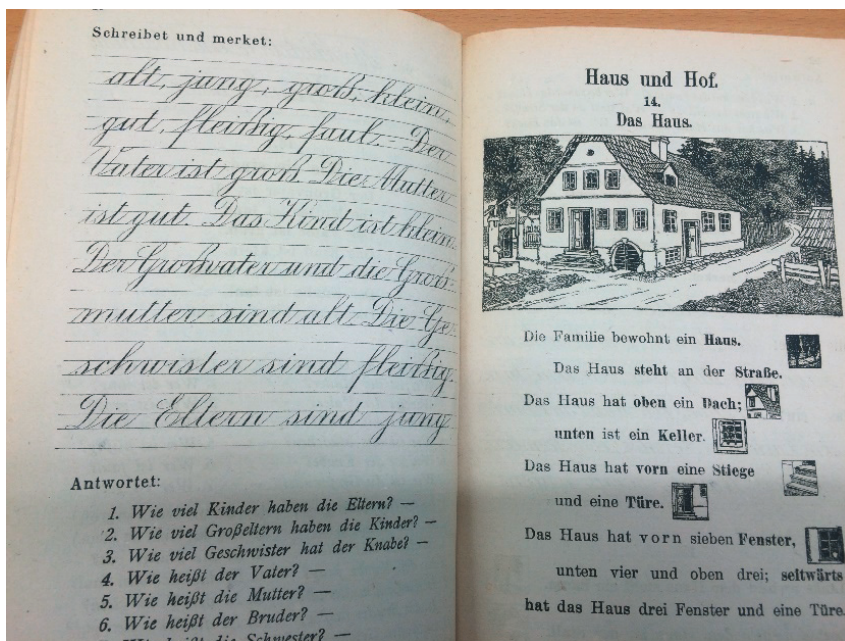 Schreibet und merket:
alt, jung, groß, klein,
gut, fleißig, faul. – Der
Vater ist groß. Die Mutter
ist gut. Das Kind ist klein.
Der Großvater und die Groß-
mutter sind alt. Die Ge-
schwister sind fleißig.
Die Eltern sind jung
Antwortet:
1. Wie viel Kinder haben die Eltern? —
2. Wie viel Großeltern haben die Kinder? —
3. Wie viel Geschwister hat der Knabe? —
4. Wie heißt der Vater? —
5. Wie heißt die Mutter? —
6. Wie heißt der Bruder? —
heißt die Schwester? —
Haus und Hof.
14.
Das Haus.
Die Familie bewohnt ein Haus.
Das Haus steht an der Straße.
Das Haus hat oben ein Dach;
unten ist ein Keller.
Das Haus hat vorn eine Stiege
und eine Türe.
Das Haus hat vorn sieben Fenster,
unten vier und oben drei; seitwärts
hat das Haus drei Fenster und eine Türe.